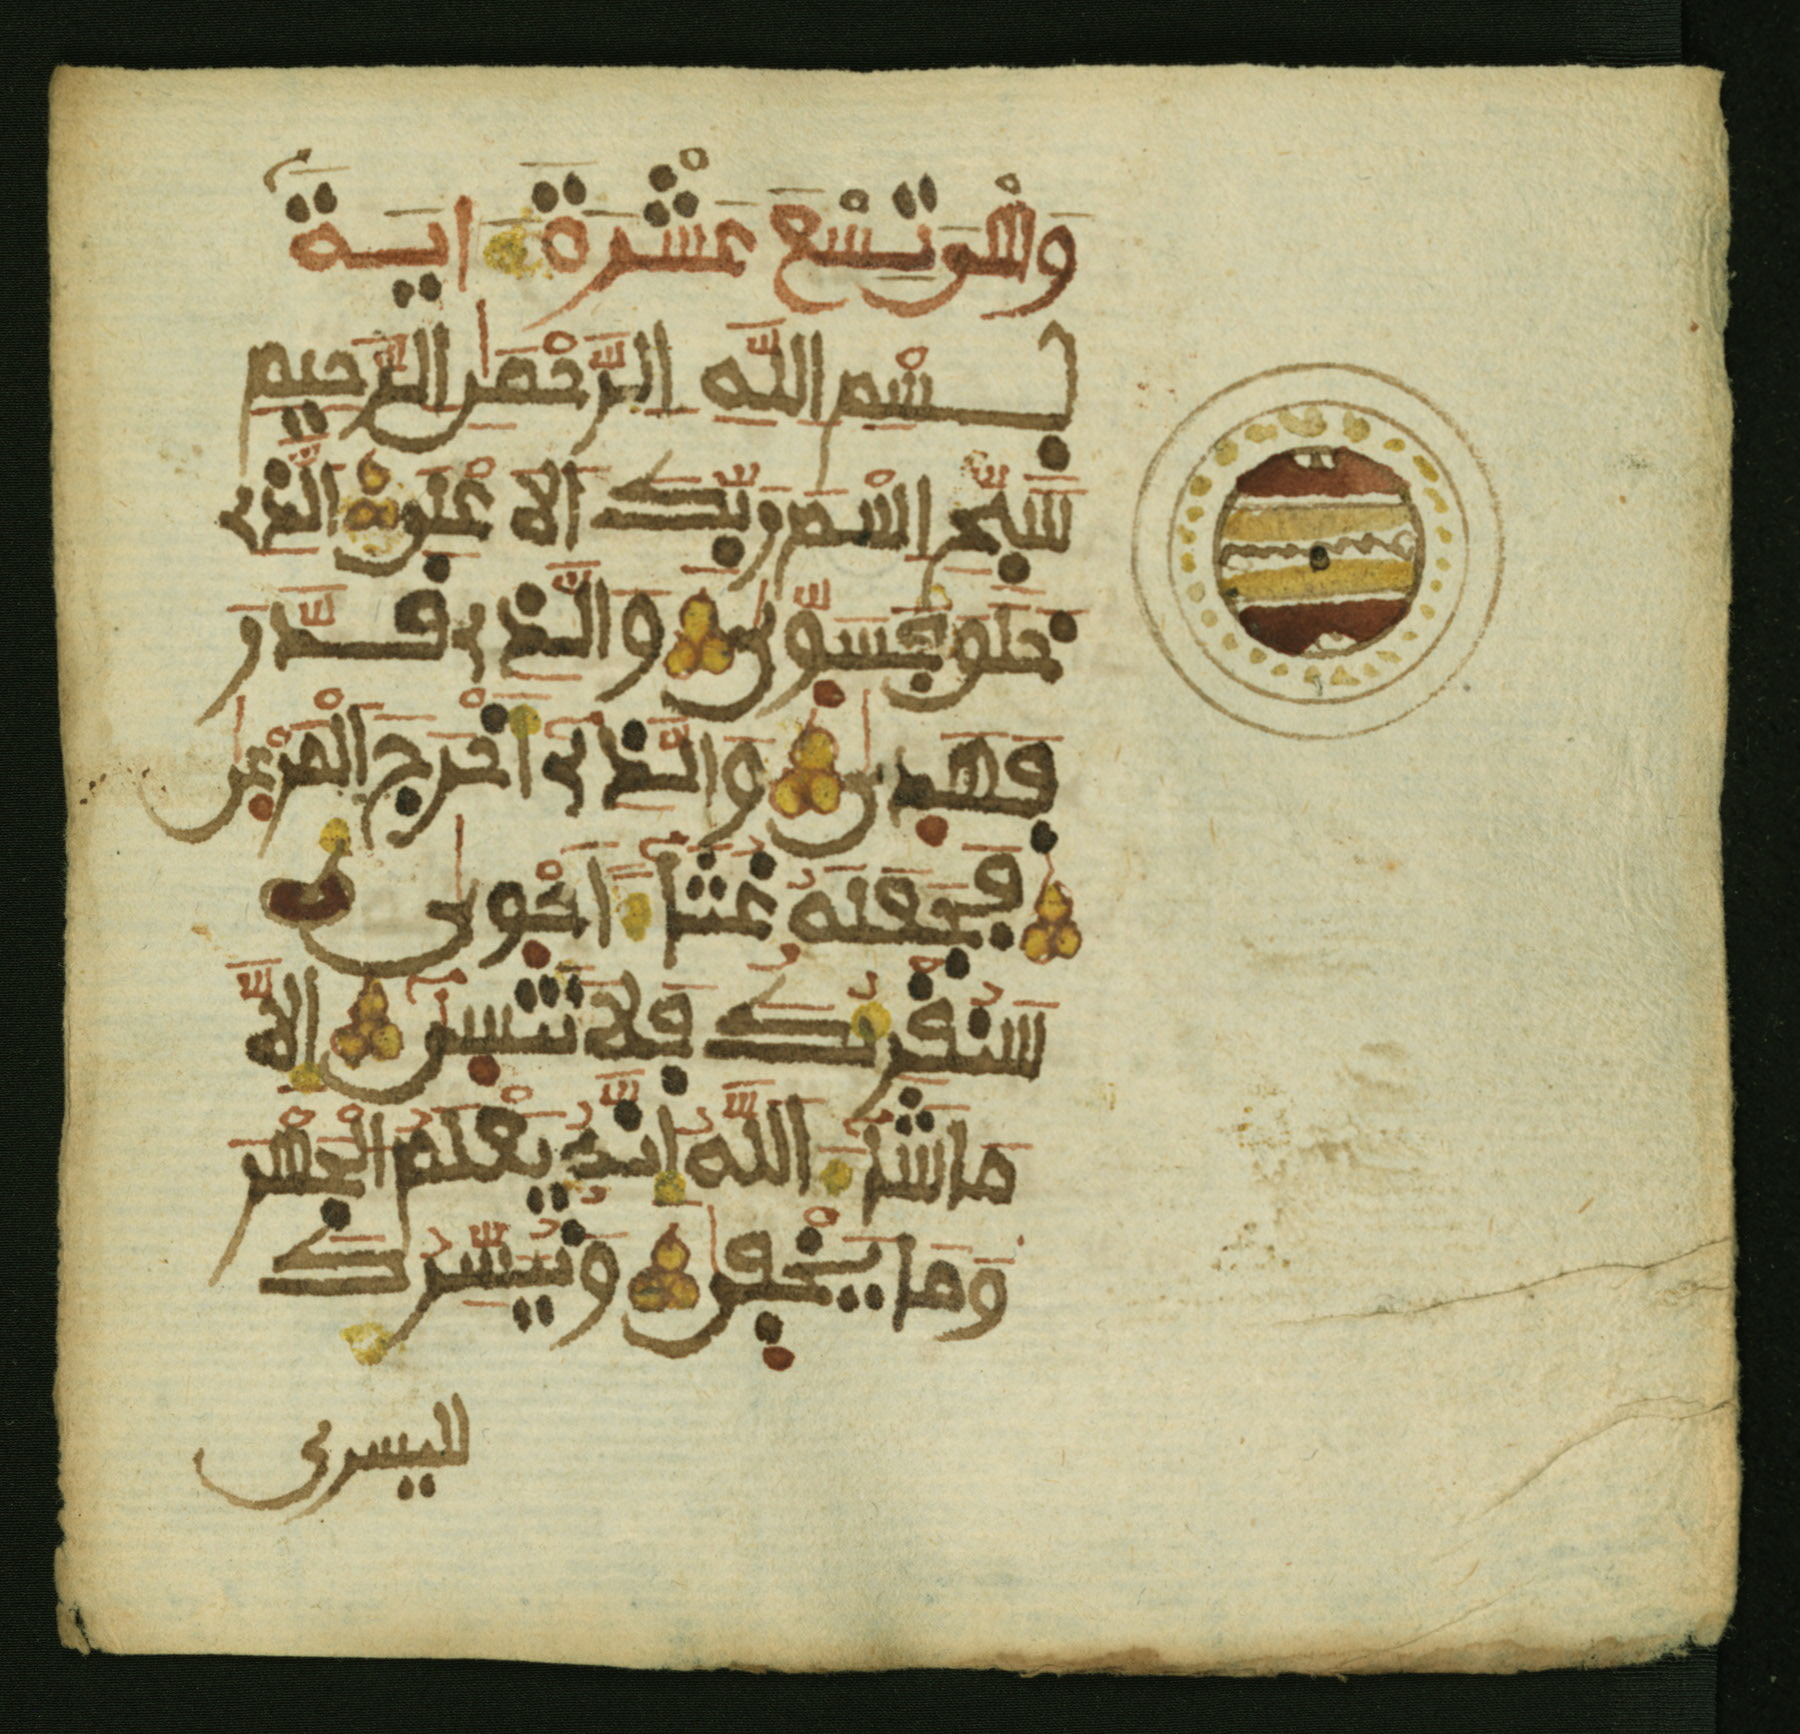 وهو تسع عشرة اية
بسم الله الرحمن الرحيم
سبح اسم ربك الاعلى الذى
خلق فسوى والذى قدر
فهدى والذى اخرج المرعى
فجعله غثا احوى
سنقريك فلا تنسى الا
ما شا الله انه يعلم الجهر
وما يخفى ونيسرك
لليسرى